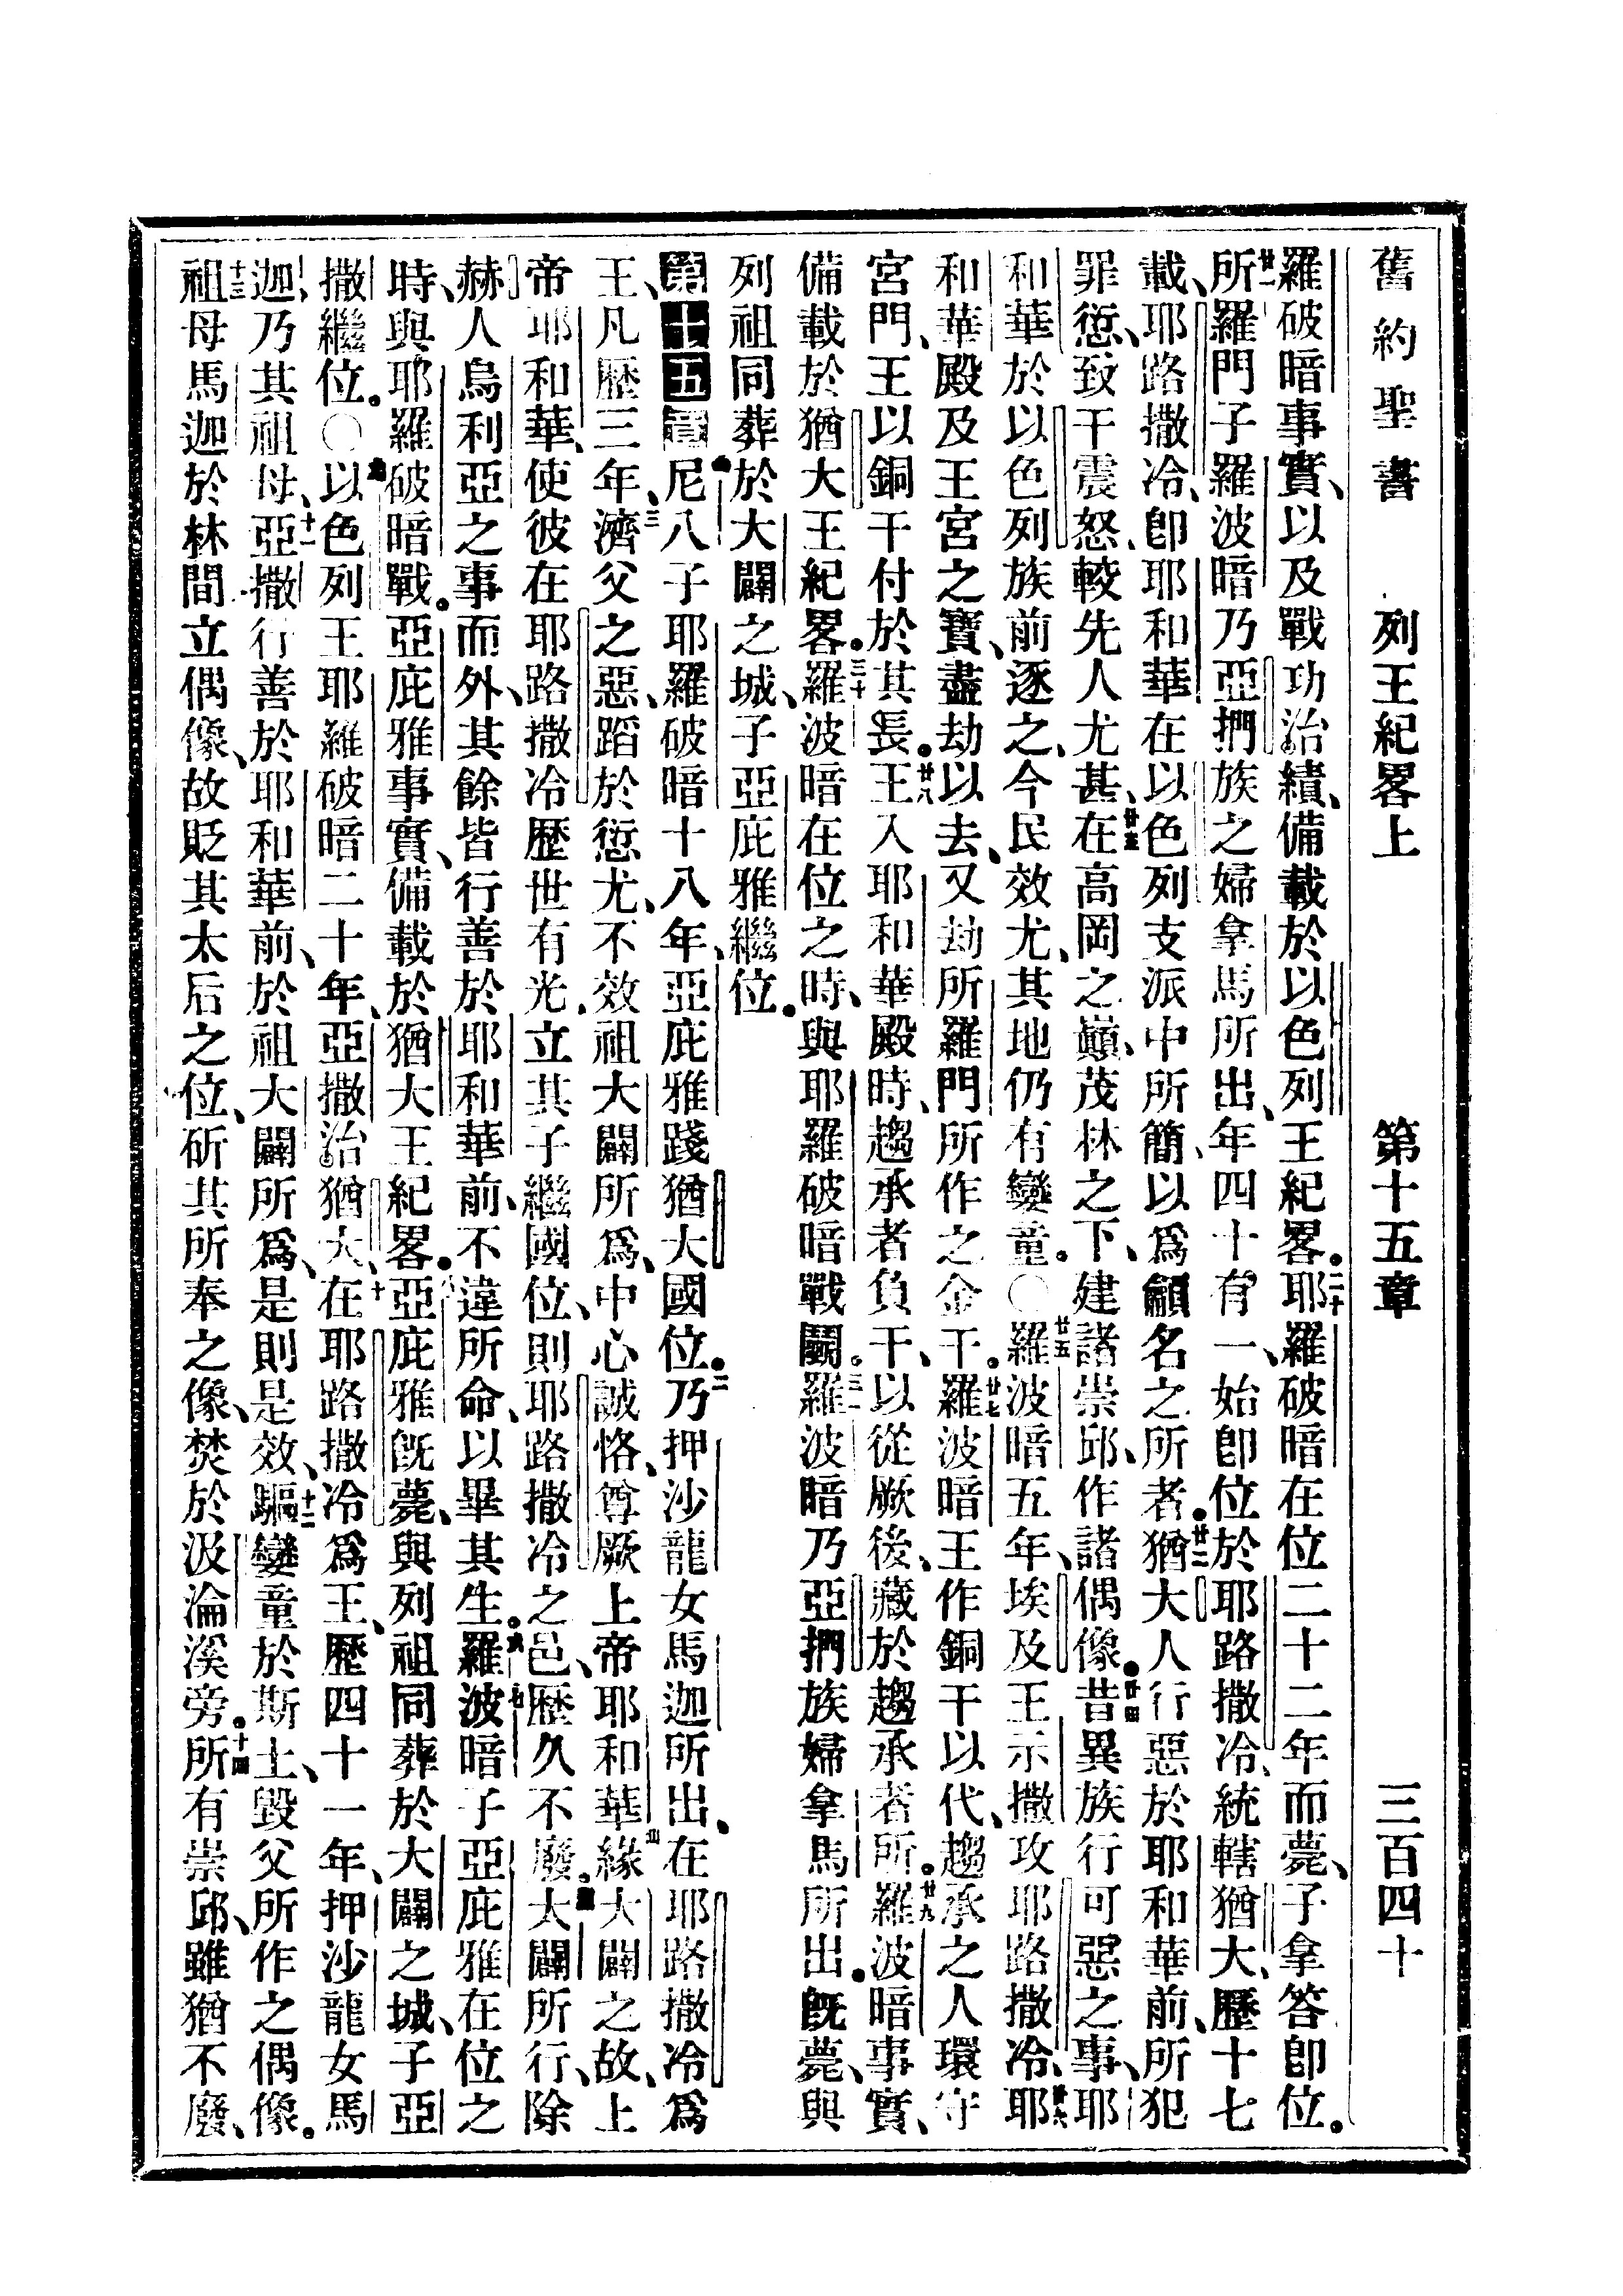 舊約聖書 列王紀畧上 第十五章 三百四十
羅破暗事實、以及戰功治績、備載於以色列王紀畧。二十耶羅破暗在位二十二年而薨、子拿答卽位。
廿一所羅門子羅波暗乃亞捫族之婦拿馬所出、年四十有一、始卽位於耶路撒冷、統轄猶大、歷十七
載、耶路撒冷、卽耶和華在以色列支派中所簡、以爲籲名之所者。廿二猶大人行惡於耶和華前、所犯
罪愆、致干震怒、較先人尤甚、廿三在高岡之巔、茂林之下、建諸崇邱、作諸偶像。廿四昔異族行可惡之事、耶
和華於以色列族前逐之、今民效尤、其地仍有孌童。〇廿五羅波暗五年、埃及王示撒攻耶路撒冷、廿六耶
和華殿及王宮之寶、盡劫以去、又劫所羅門所作之金干。廿七羅波暗王作銅干以代、趨承之人環守
宮門、王以銅干付於其長。廿八王入耶和華殿時、趨承者負干、以從厥後、藏於趨承者所。廿九羅波暗事實、
備載於猶大王紀畧。三十羅波暗在位之時、與耶羅破暗戰鬭。三一羅波暗乃亞捫族婦拿馬所出。旣薨、與
列祖同葬於大闢之城、子亞庇雅繼位。
第十五章 一尼八子耶羅破暗十八年、亞庇雅踐猶大國位。二乃押沙龍女馬迦所出、在耶路撒冷爲
王、凡歷三年、三濟父之惡、蹈於愆尤、不效祖大闢所爲、中心誠恪、尊厥上帝耶和華、四緣大闢之故、上
帝耶和華、使彼在耶路撒冷歷世有光、立其子繼國位、則耶路撒冷之邑、歷久不廢。五大闢所行、除
赫人烏利亞之事而外、其餘皆行善於耶和華前、不違所命、以畢其生。六羅波暗七子亞庇雅在位之
時、與耶羅破暗戰。亞庇雅事實、備載於猶大王紀畧。八亞庇雅旣薨、與列祖同葬於大闢之城、子亞
撒繼位。〇九以色列王耶羅破暗二十年、亞撒治猶大、十在耶路撒冷爲王、歷四十一年、押沙龍女馬
迦乃其祖母、十一亞撒行善於耶和華前、於祖大闢所爲、是則是效、十二驅孌童於斯土、毀父所作之偶像。
十三祖母馬迦於林間立偶像、故貶其太后之位、斫其所奉之像、焚於汲淪溪旁。十四所有崇邱、雖猶不廢、